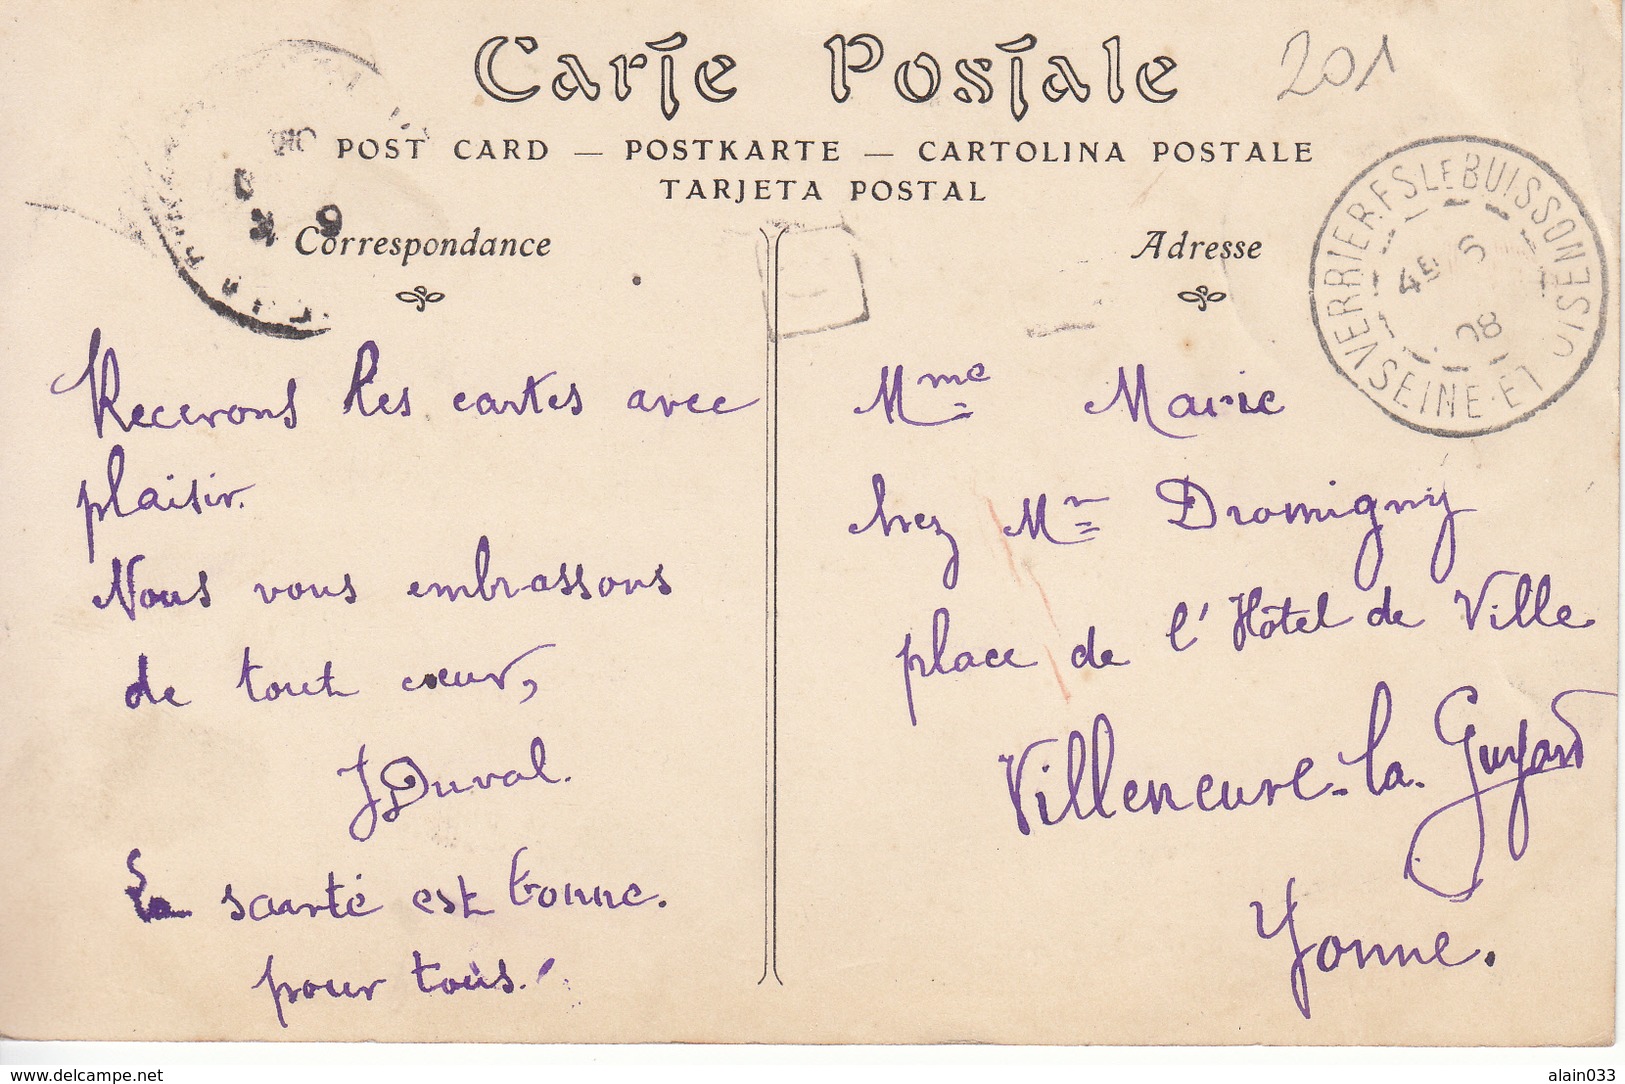 Carte Postale
201
POST CARD — POSTKARTE — CARTOLINA POSTALE
TARJETA POSTAL
Correspondance
Recevons les cartes avec
plaisir.
Nous vous embrassons
de tout cœur,
J Duval.
La santé est bonne.
pour tous.
Adresse
VERRIERES LE BUISSON
SEINE-ET-OISE
4E 6
08
Mme Marie
chez Mr Dromigny
place de l'Hôtel de Ville
Villeneuve-la-Guyard
Yonne.
www.delcampe.net
alain033